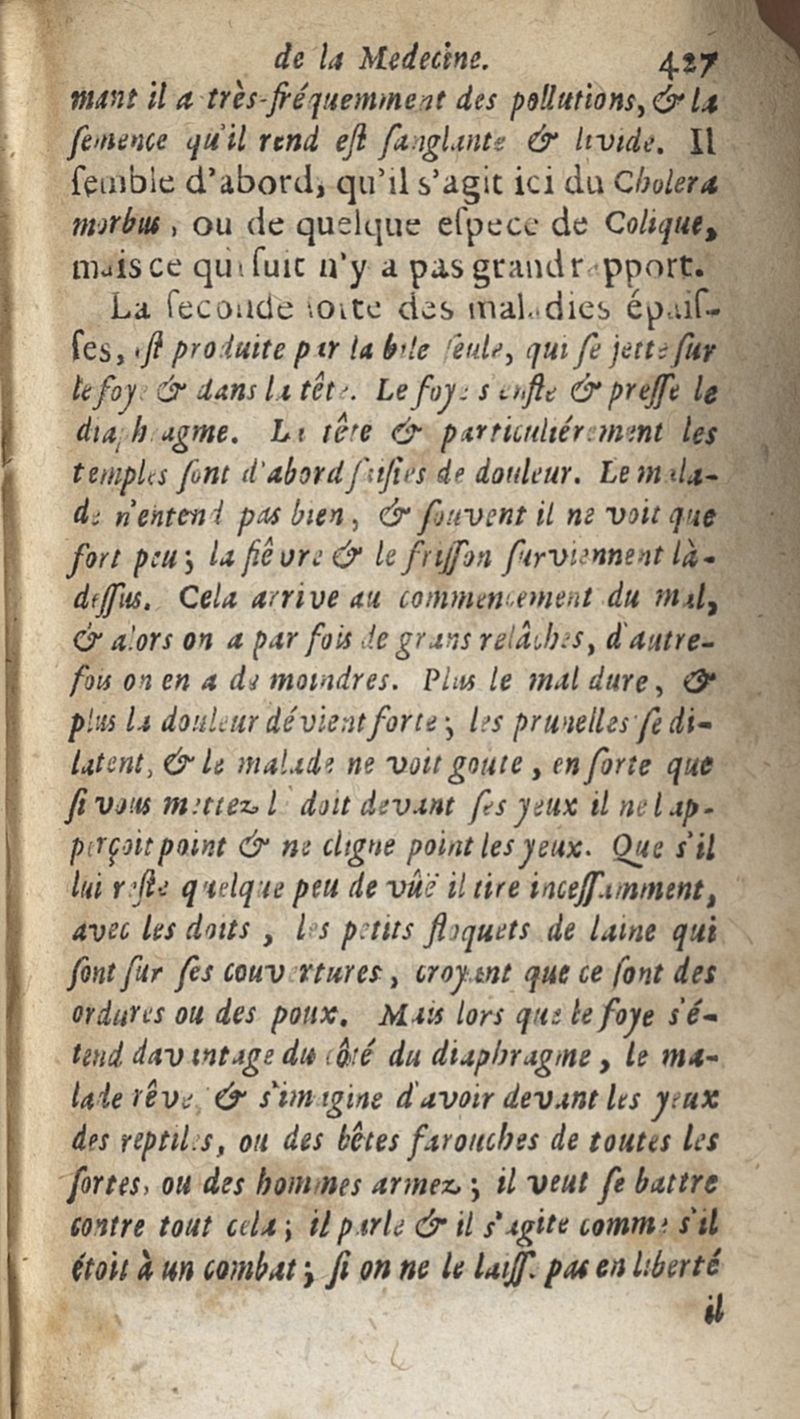 de la Medecine. 427
mant il a très-fréquemment des pollutions, & la
ſemence qu'il rend eſt ſanglante & livide. Il
ſemble d'abord, qu'il s'agit ici du Cholera
morbus, ou de quelque eſpece de Colique,
mais ce qui ſuit n'y a pas grand rapport.
La ſeconde ſorte des maladies épaiſ-
ſes, eſt produite par la bile ſeule, qui ſe jette ſur
le foye & dans la tête. Le foye s'enfle & preſſe le
diaphragme. La tête & particuliérement les
temples ſont d'abord ſaiſies de douleur. Le mala-
de n'entend pas bien, & ſouvent il ne voit que
fort peu; la fiêvre & le friſſon ſurviennent là-
deſſus. Cela arrive au commencement du mal,
& alors on a par fois de grans relâches, d'autre-
fois on en a de moindres. Plus le mal dure, &
plus la douleur dévient forte; les prunelles ſe di-
latent, & le malade ne voit goute, en ſorte que
ſi vous mettez l doit devant ſes yeux il ne l'ap-
perçoit point & ne cligne point les yeux. Que s'il
lui reſte quelque peu de vûë il tire inceſſamment,
avec les doits, les petits floquets de laine qui
ſont ſur ſes couvertures, croyant que ce ſont des
ordures ou des poux. Mais lors que le foye s'é-
tend davantage du côté du diaphragme, le ma-
lade rêve & s'imagine d'avoir devant les yeux
des reptiles, ou des bêtes farouches de toutes les
ſortes, ou des hommes armez; il veut ſe battre
contre tout cela; il parle & il s'agite comme s'il
étoit à un combat; ſi on ne le laiſſe pas en liberté
il